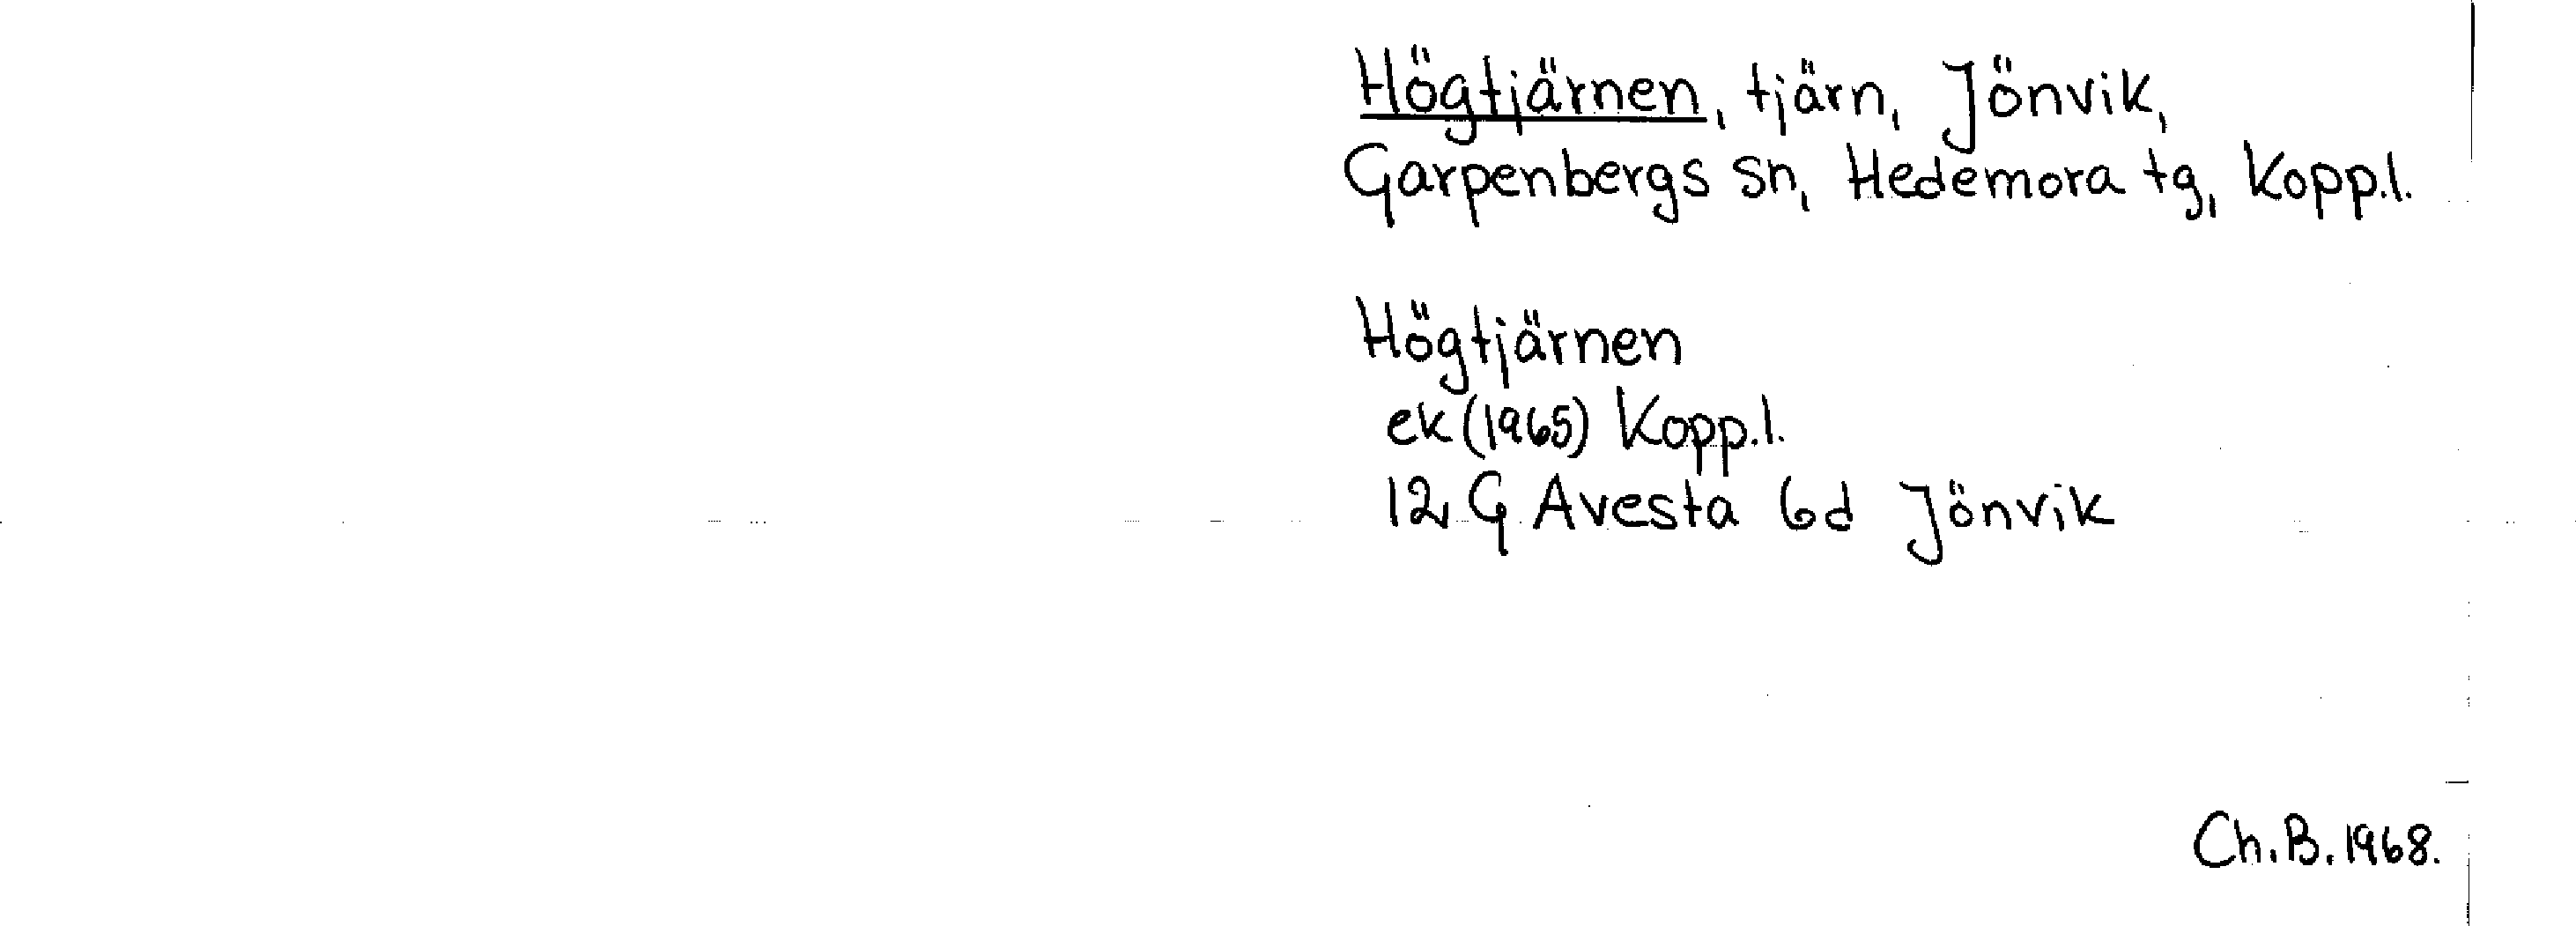 Högtjärnen, tjärn, Jönvik,
Garpenbergs sn, Hedemora tg, Kopp.l.
Högtjärnen
ek (1965) Kopp.l.
12 G Avesta 6d Jönvik
Ch.B. 1968.